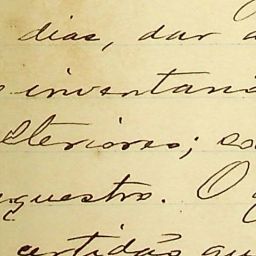 dias, dar a
inventari
lteriores; so
questro. O q
artidão qu